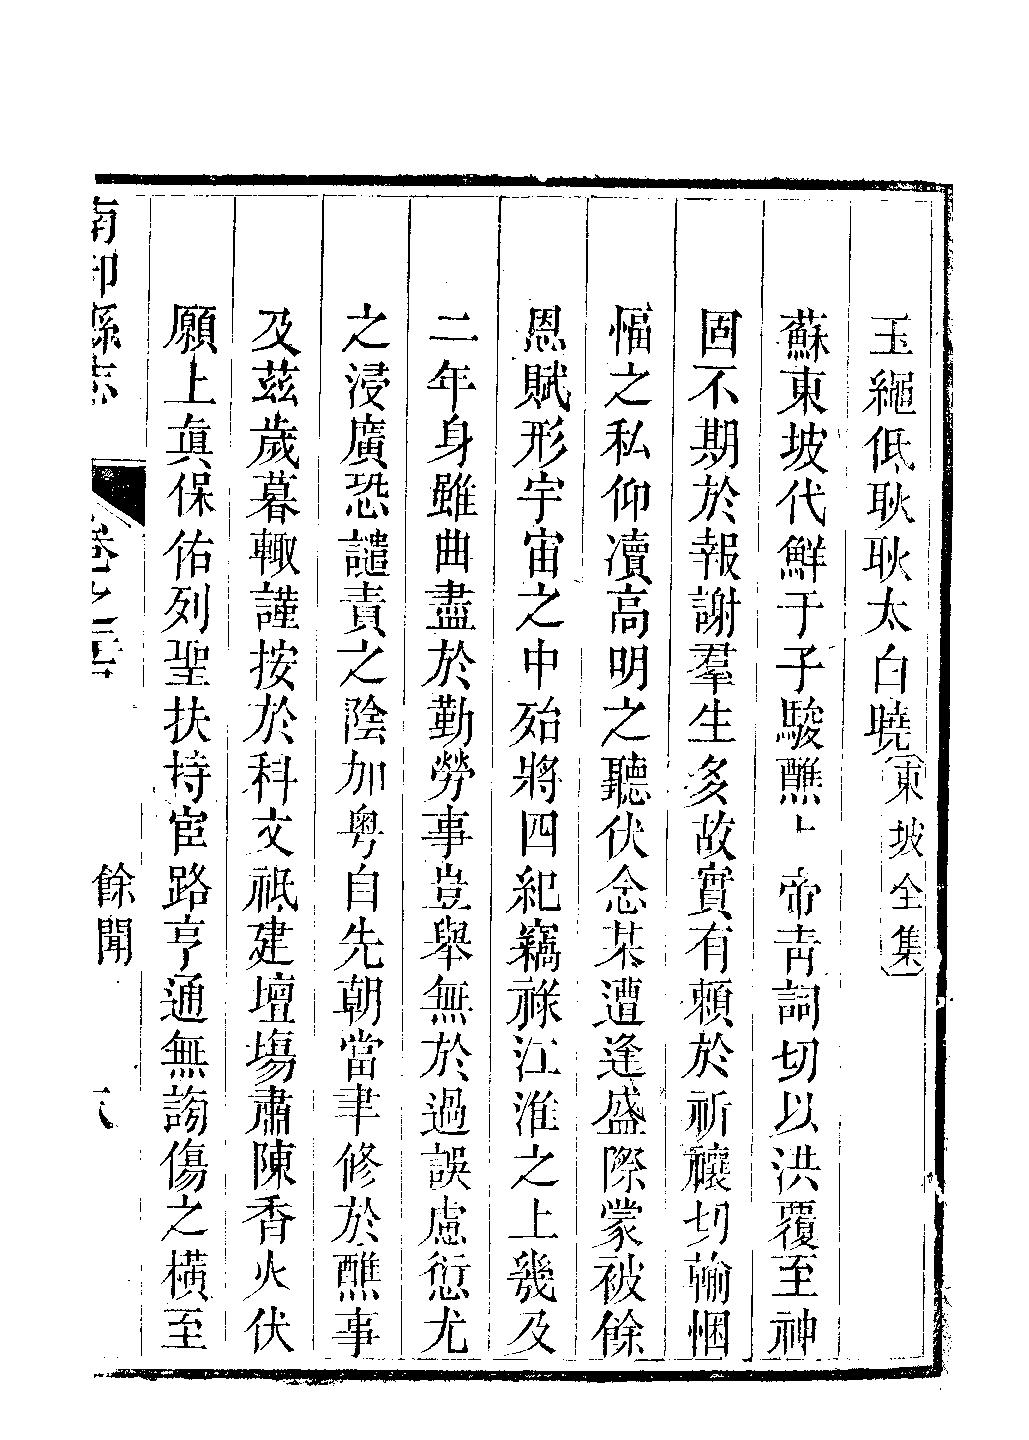 玉繩低耿耿太白曉〔東坡全集〕
蘇東坡代鮮于子駿醮上帝靑詞切以洪覆至神
固不期於報謝羣生多故實有頼於祈禳切輸悃
愊之私仰凟高明之聽伏念某遭逢盛際蒙被餘
恩賦形宇宙之中殆將四紀竊祿江淮之上幾及
二年身雖曲盡於勤勞事豈舉無於過誤慮愆尤
之浸廣恐譴責之陰加粤自先朝當聿修於醮事
及茲歲暮輙謹按於科文祇建壇塲肅陳香火伏
願上眞保佑列聖扶持宦路亨通無謭傷之橫至
南部縣志
卷之二
餘聞